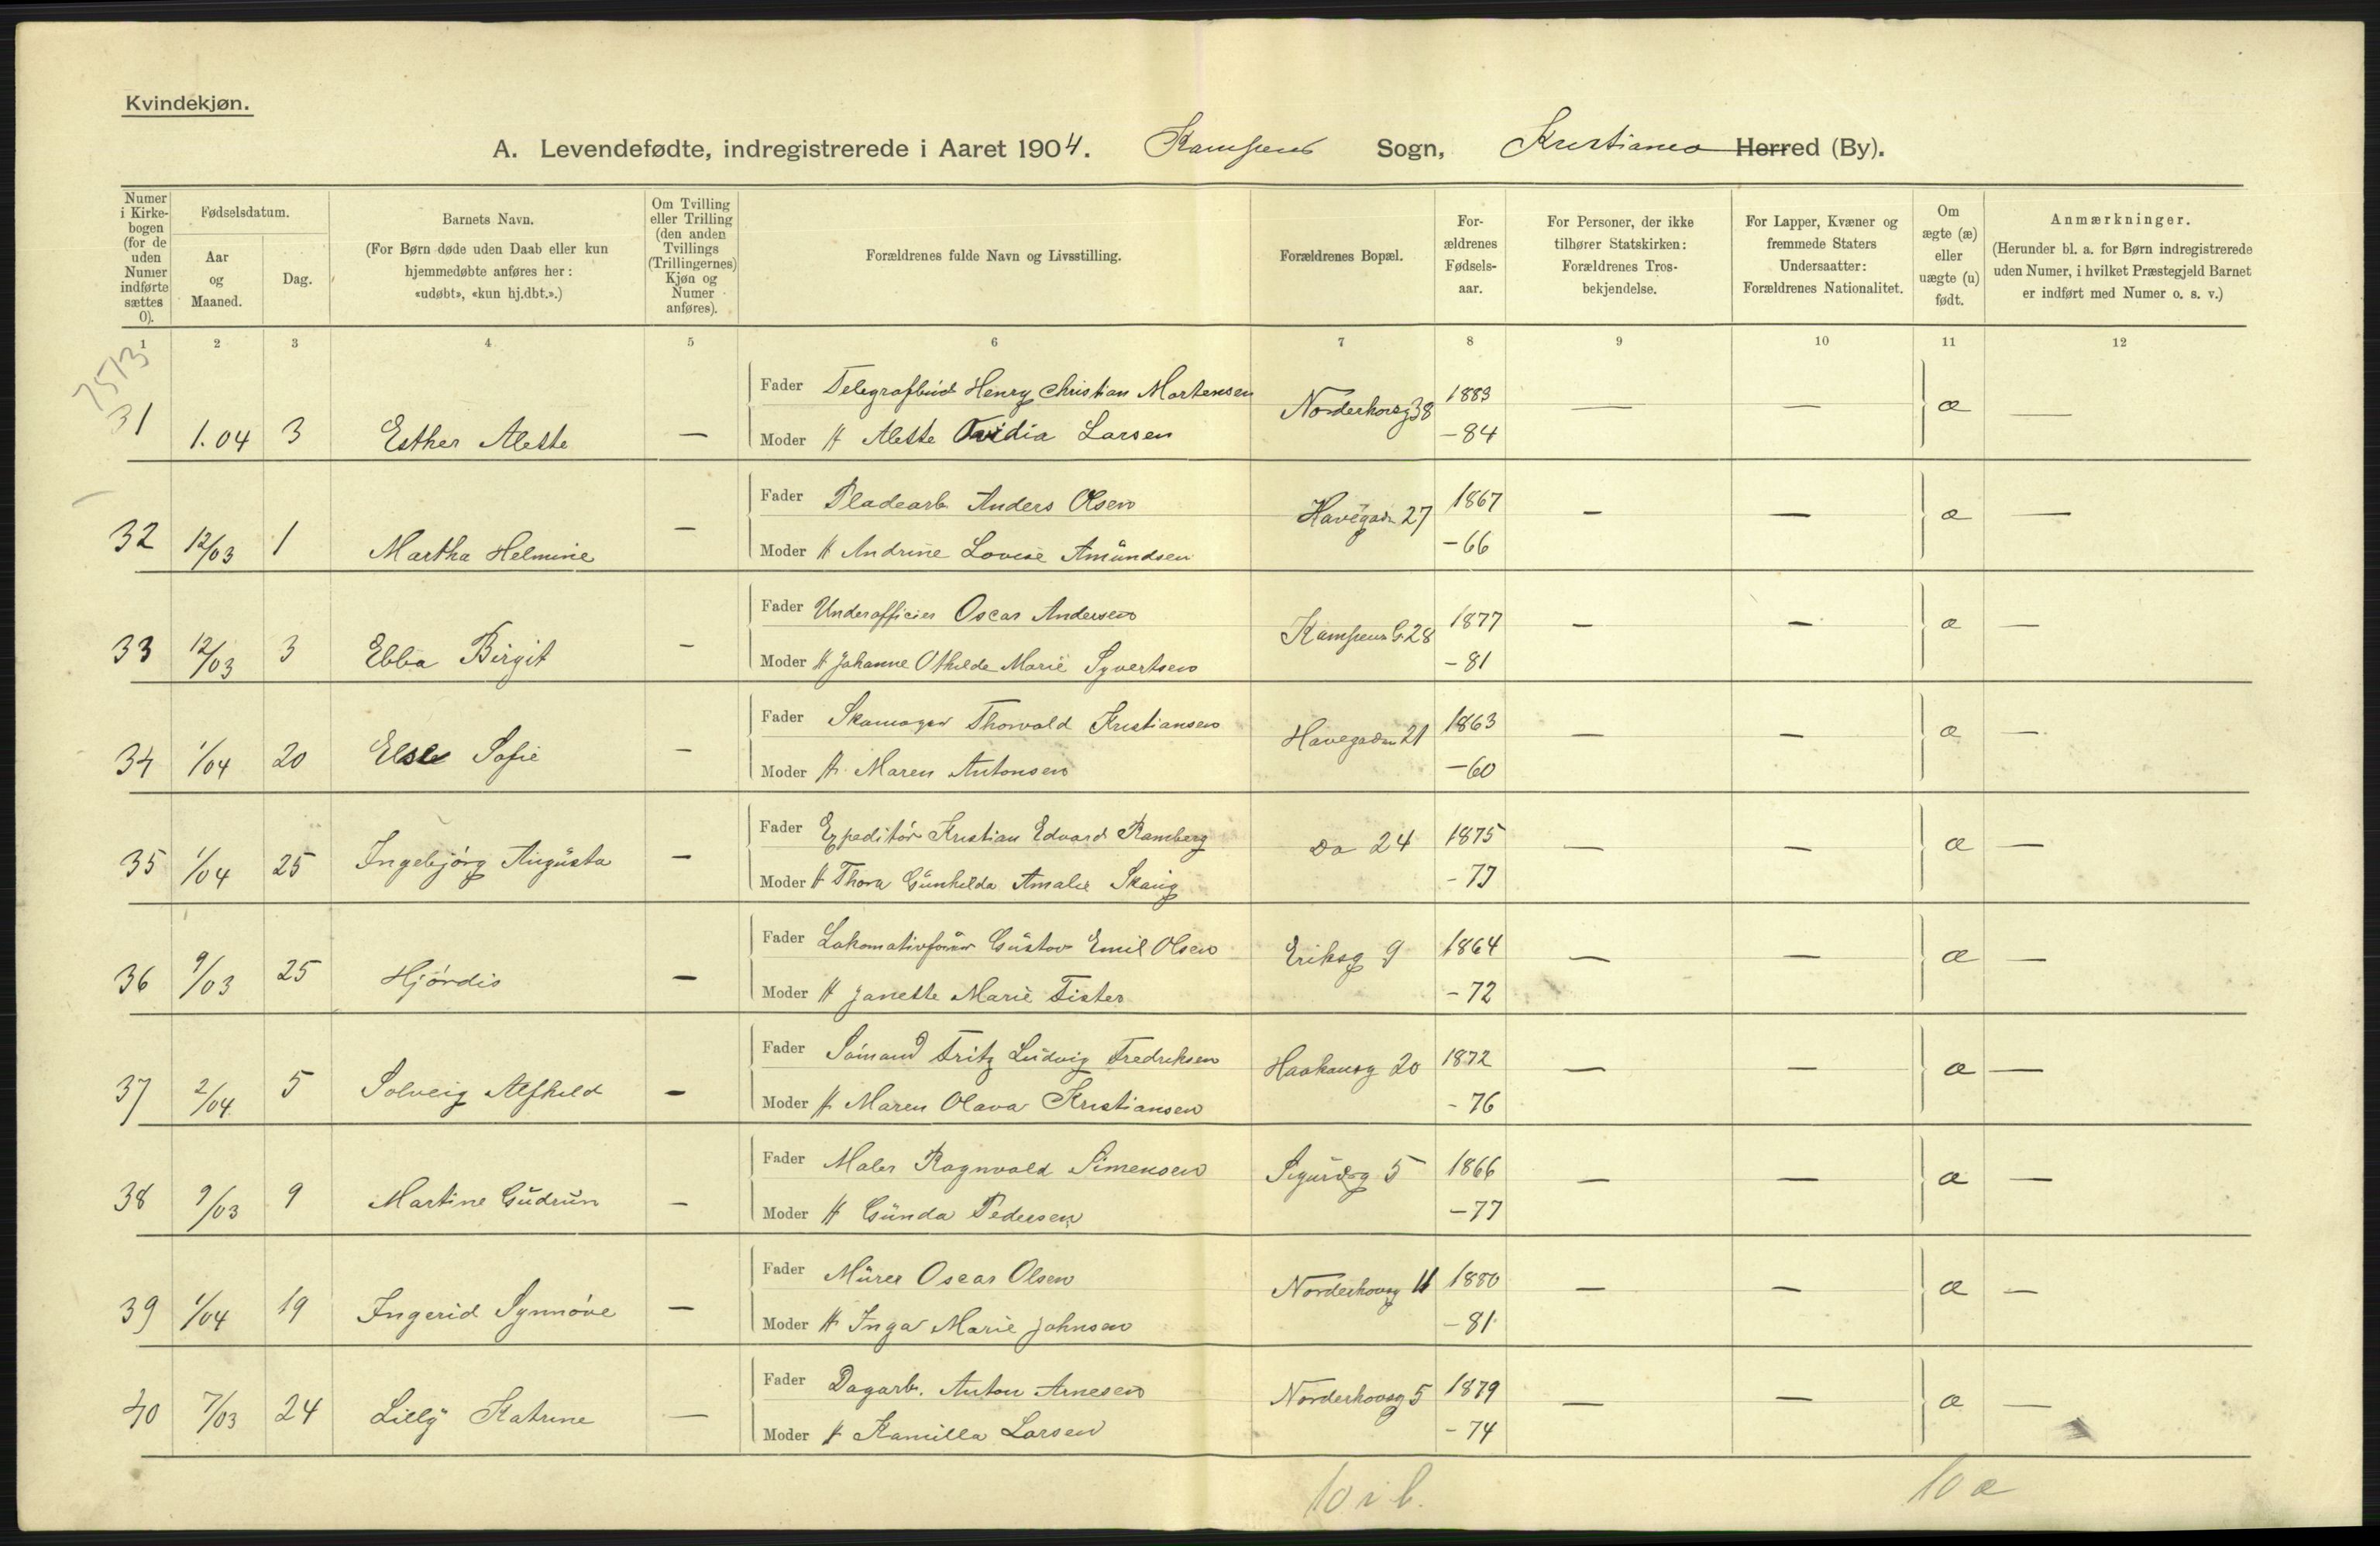 Kvindekjøn.
A. Levendefødte, indregistrerede i Aaret 1904. Kampens Sogn, Kristiania Herred (By).
Numer i Kirkebogen (for de uden Numer indførte sættes 0).
Fødselsdatum.
Aar og Maaned.
Dag.
Barnets Navn.
(For Børn døde uden Daab eller kun hjemmedøbte anføres her: «udøbt», «kun hj.dbt.».)
Om Tvilling eller Trilling (den anden Tvillings (Trillingernes) Kjøn og Numer anføres).
Forældrenes fulde Navn og Livsstilling.
Forældrenes Bopæl.
Forældrenes Fødselsaar.
For Personer, der ikke tilhører Statskirken: Forældrenes Trosbekjendelse.
For Lapper, Kvæner og fremmede Staters Undersaatter: Forældrenes Nationalitet.
Om ægte (æ) eller uægte (u) født.
Anmærkninger.
(Herunder bl. a. for Børn indregistrerede uden Numer, i hvilket Præstegjeld Barnet er indført med Numer o. s. v.)
1 2 3 4 5 6 7 8 9 10 11 12
7513
31 1.04 3 Esther Alette — Fader Telegrafbud Henry Christian Mortensen Norderhovsg 38 1883 — — æ —
Moder H Alette Ovidia Larsen - 84
32 12/03 1 Martha Helmine — Fader Pladearb Anders Olsen Havegadn 27 1867 — — æ —
Moder H Andrine Lovise Amundsen - 66
33 12/03 3 Ebba Birgit — Fader Underofficier Oscar Andersen Kampens G 28 1877 — — æ —
Moder H Johanne Othilde Marie Syvertsen - 81
34 1/04 20 Else Sofie — Fader Skomager Thorvald Kristiansen Havegaden 21 1863 — — æ —
Moder H Maren Antonsen - 60
35 1/04 25 Ingebjørg Augusta — Fader Expeditør Kristian Edvard Ramberg Do 24 1875 — — æ —
Moder H Thora Gunhilda Amalie Skaug - 77
36 9/03 25 Hjørdis — Fader Lokomativfører Gustav Emil Olsen Eriksg 9 1864 — — æ —
Moder H Janette Marie Tister - 72
37 2/04 5 Solveig Alfhild — Fader Sømand Fritz Ludvig Fredriksen Haakonsg 20 1872 — — æ —
Moder H Maren Olava Kristiansen - 76
38 9/03 9 Martine Gudrun — Fader Maler Ragnvald Simensen Sigurdsg 5 1866 — — æ —
Moder H Gunda Pedersen - 77
39 1/04 19 Ingerid Synnøve — Fader Murer Oscar Olsen Norderhovsg 11 1880 — — æ —
Moder H Inga Marie Johnsen - 81
40 7/03 24 Lilly Katrine — Fader Dagarb. Anton Arnesen Norderhovsg 5 1879 — — æ —
Moder H Kamilla Larsen - 74
10 i b. 10 æ